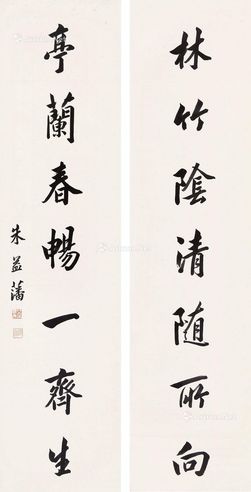 林竹陰清随所向
亭蘭春暢一齊生
朱益藩